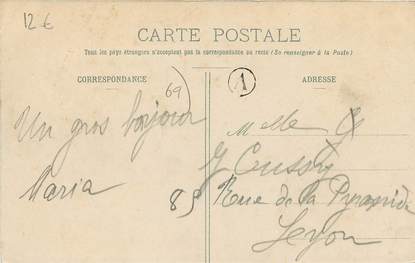 12 €
CARTE POSTALE
Tous les pays étrangers n'acceptent pas la correspondance au recto (Se renseigner à la Poste)
CORRESPONDANCE
ADRESSE
69
A
Un gros bonjour
Maria
Melle G
G Cussy
85 Rue de la Pyramide
Lyon